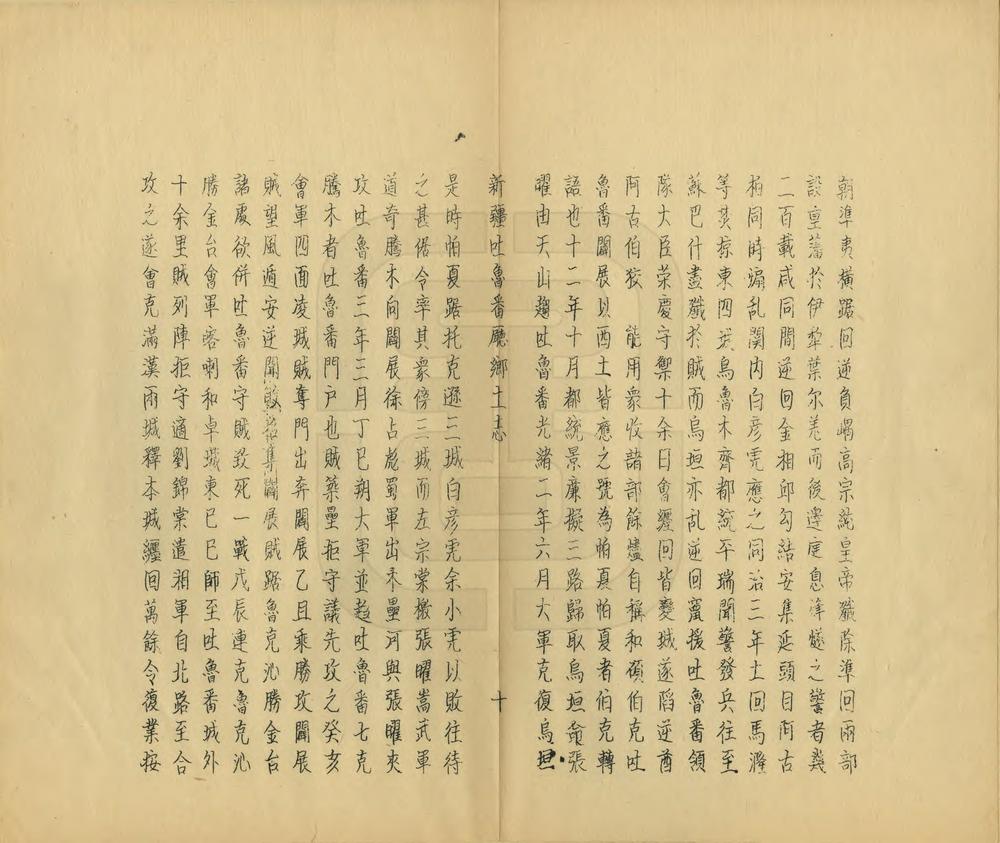 朝準夷橫踞回逆負嵎高宗純皇帝殲除準回兩部
設重藩於伊犁葉尔羌而後邊庭息烽燧之警者幾
二百載咸同間逆回金相邱勾結安集延頭目阿古
柏同時煽乱関内白彥虎應之同治三年土回馬隆
等焚掠東四城烏魯木齊都統平瑞聞警發兵往至
蘇巴什盡殲於賊而烏垣亦乱逆回竄援吐魯番領
隊大臣榮慶守禦十余日會纏回皆變城遂陷逆酋
阿古伯狡 能用衆收諸部餘燼自稱和碩伯克吐
魯番闢展以西土皆應之號為帕夏帕夏者伯克轉
語也十二年十月都統景廉擬三路歸取烏垣奇張
曜由天山趨吐魯番光緒二年六月大軍克復烏垣
新疆吐魯番廳鄉土志 十
是時帕夏踞托克遜三城白彥虎余小虎以敗往待
之甚倨令率其衆傍三城而左宗棠檄張曜嵩武軍
道奇騰木向闢展徐占彪蜀軍出木壘河與張曜夾
攻吐魯番三年三月丁巳朔大軍並趨吐魯番七克
騰木者吐魯番門户也賊築壘拒守議先攻之癸亥
會軍四面凌城賊奪門出奔闢展乙丑乘勝攻闢展
賊望風遁安逆聞敗召集闢展賊踞魯克沁勝金台
諸處欲併吐魯番守賊致死一戰戊辰連克魯克沁
勝金台會軍喀喇和卓城東己巳師至吐魯番城外
十余里賊列陣拒守適劉錦棠遣湘軍自北路至合
攻之遂會克滿漢兩城釋本城纏回萬餘令復業按